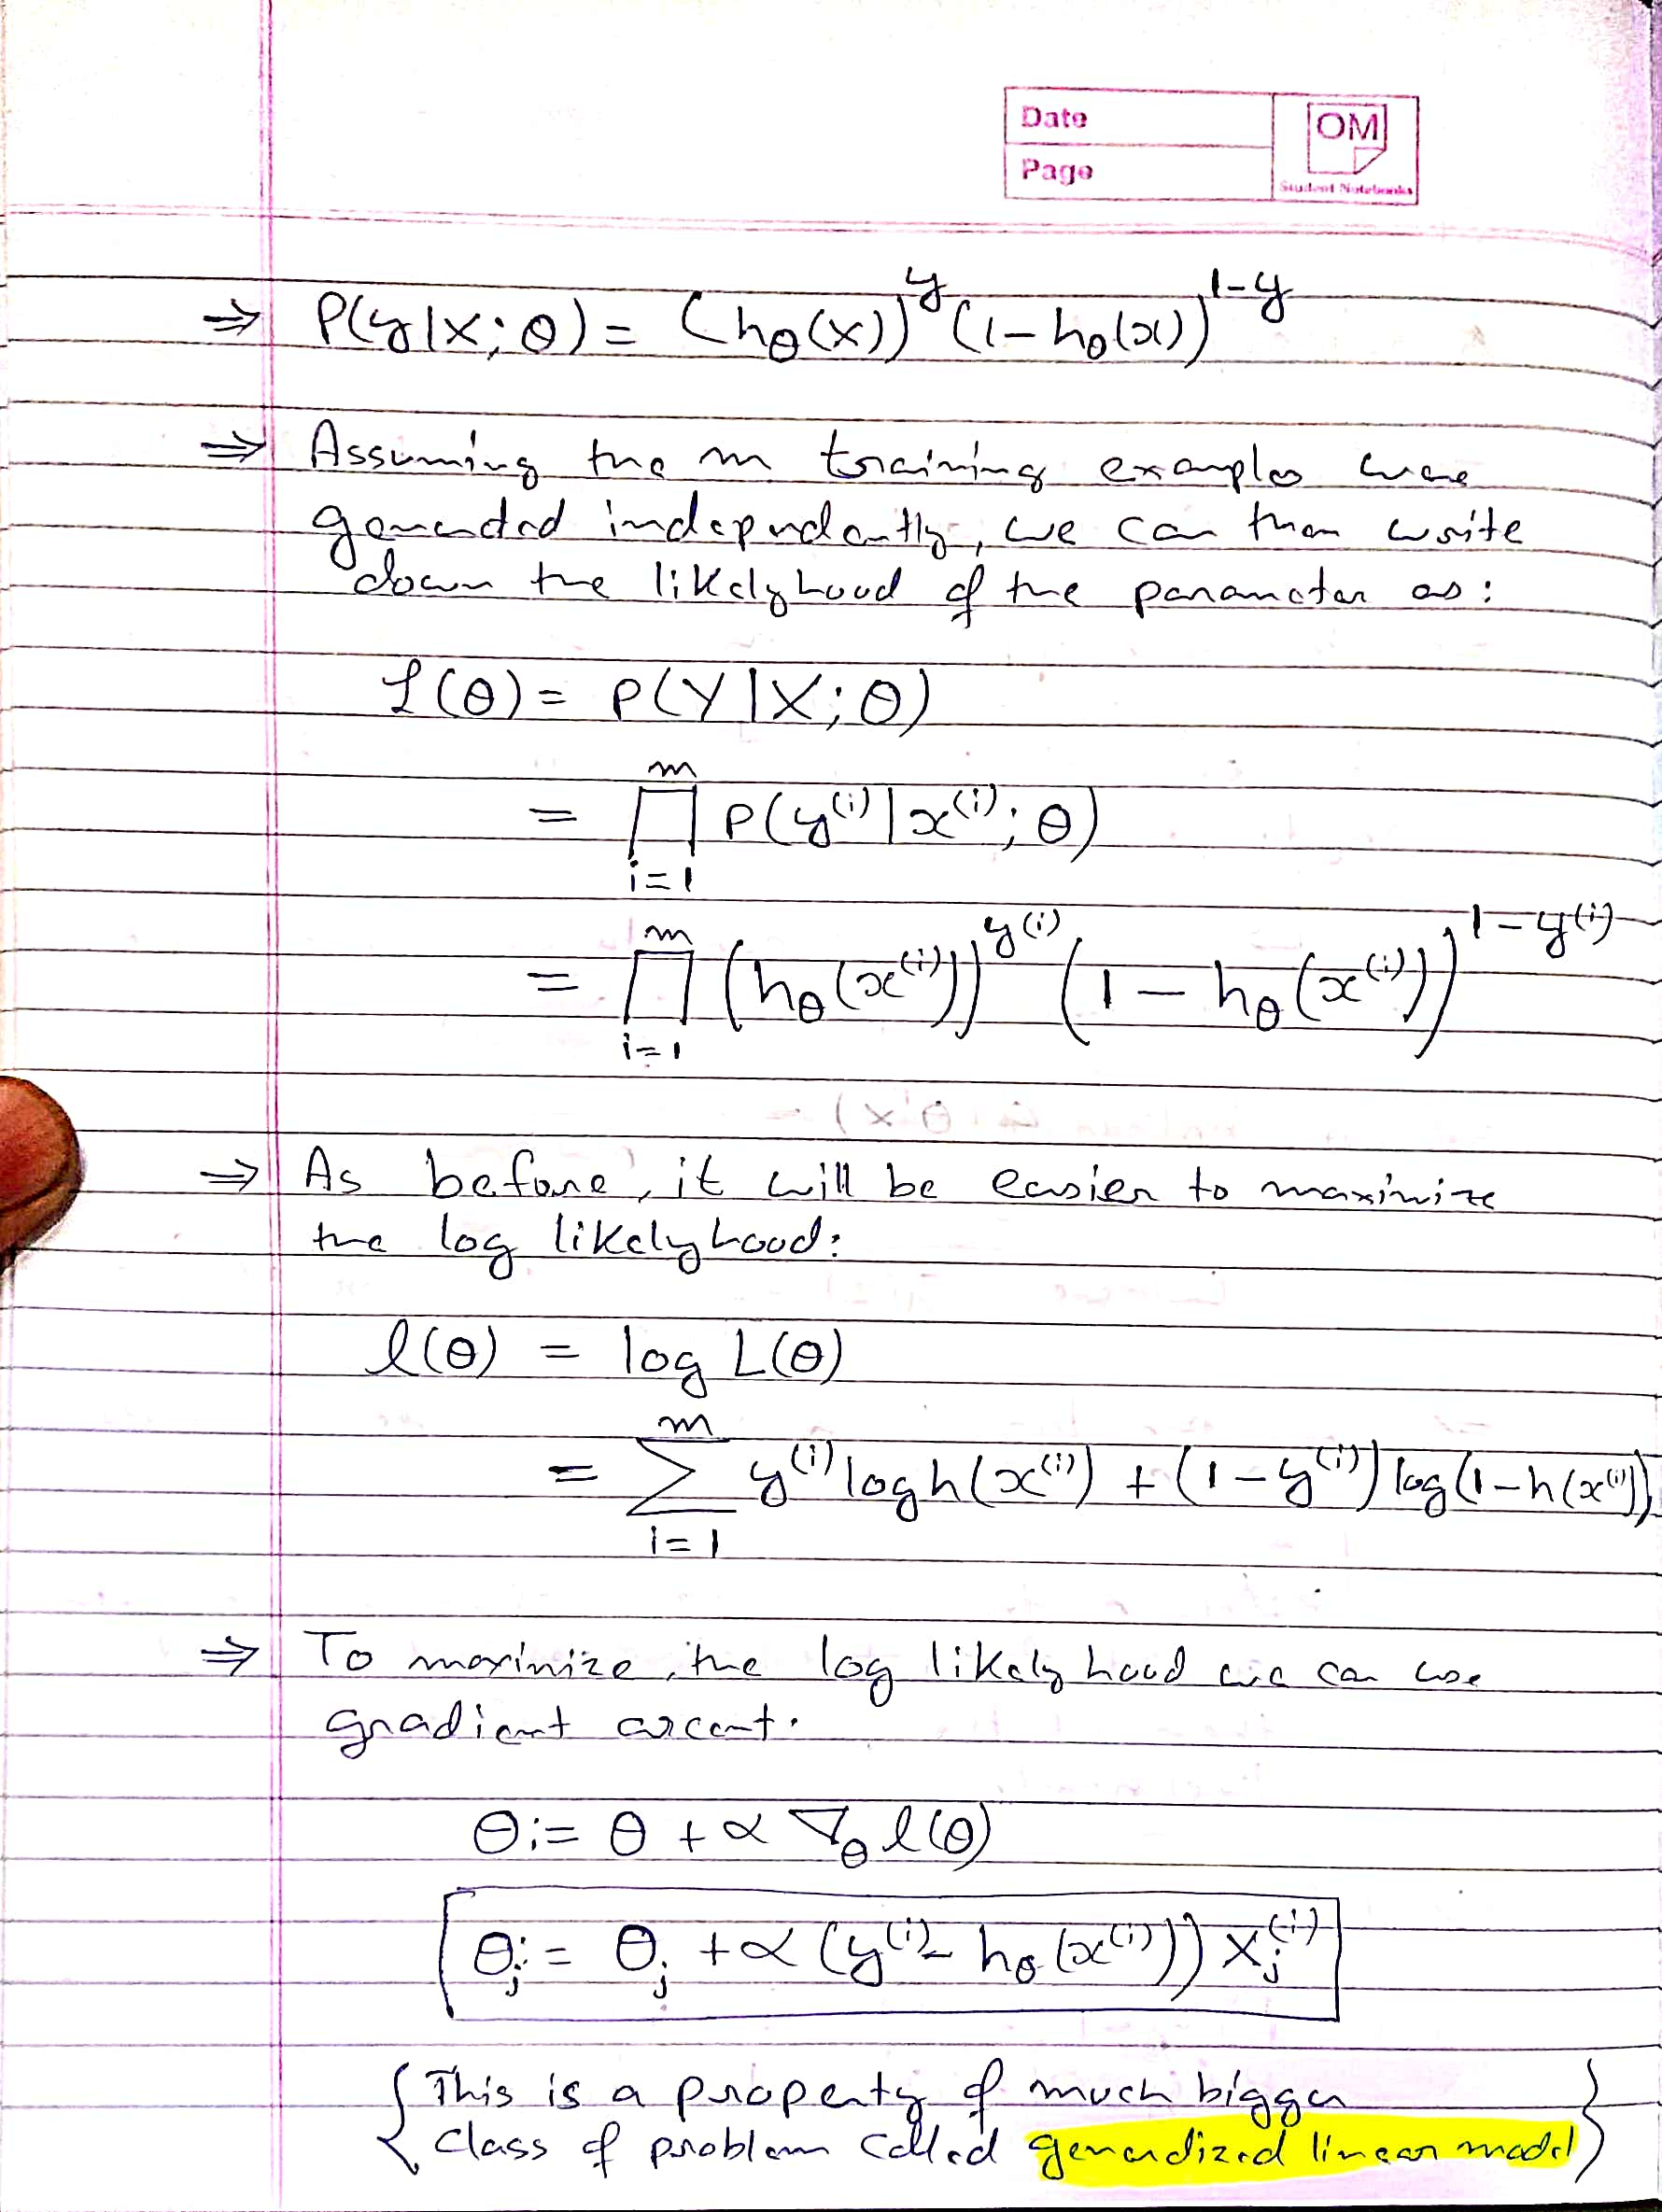 Date
Page
OM
Student Notebooks
⇒ P(y|x; θ) = (hθ(x))^y (1 - hθ(x))^1-y
⇒ Assuming the m training examples were
generated independently, we can then write
down the likelyhood of the parameter as:
L(θ) = P(Y|X; θ)
= ∏_{i=1}^{m} P(y^(i) | x^(i); θ)
= ∏_{i=1}^{m} (hθ(x^(i)))^{y^(i)} (1 - hθ(x^(i)))^{1-y^(i)}
⇒ As before, it will be easier to maximize
the log likelyhood:
l(θ) = log L(θ)
= ∑_{i=1}^{m} y^(i) log h(x^(i)) + (1 - y^(i)) log(1 - h(x^(i)))
⇒ To maximize the log likely hood we can use
gradient ascent.
θ := θ + α ∇θ l(θ)
θj := θj + α (y^(i) - hθ(x^(i))) xj^(i)
{ This is a property of much bigger
class of problem called generalized linear model }